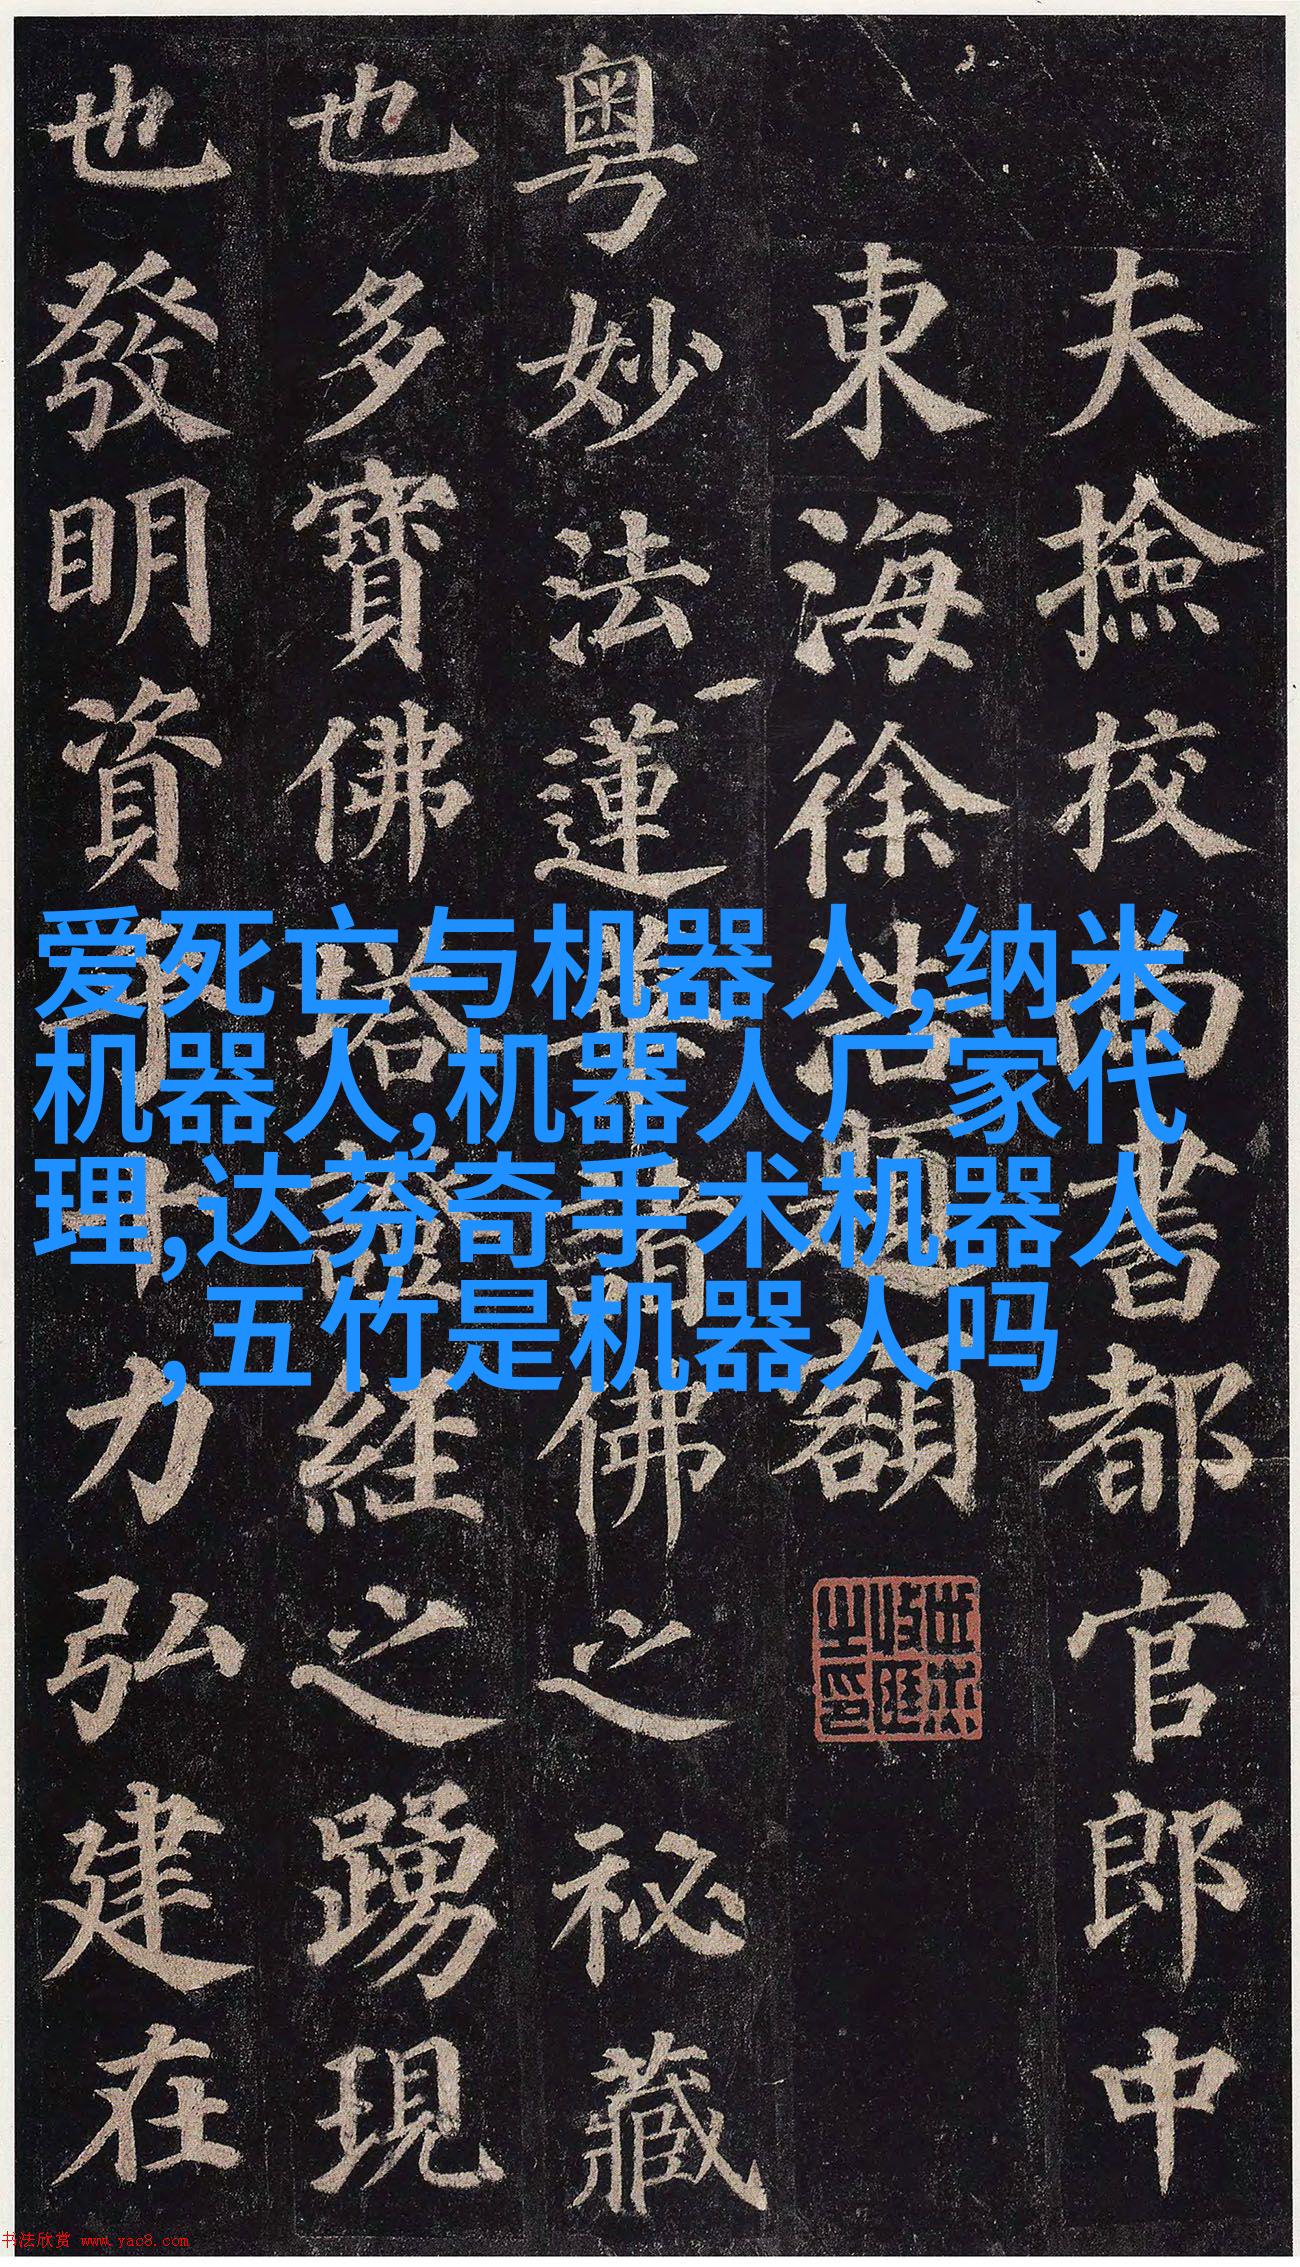 夫撿挍尚書都官郎中
東海徐浩題額
粵妙法蓮華諸佛之祕藏
也多寶佛塔證經之踴現
也發明資乎十力弘建在
爱死亡与机器人,纳米
机器人,机器人厂家代
理,达芬奇手术机器人
,五竹是机器人吗
书法欣赏 www.yac8.com